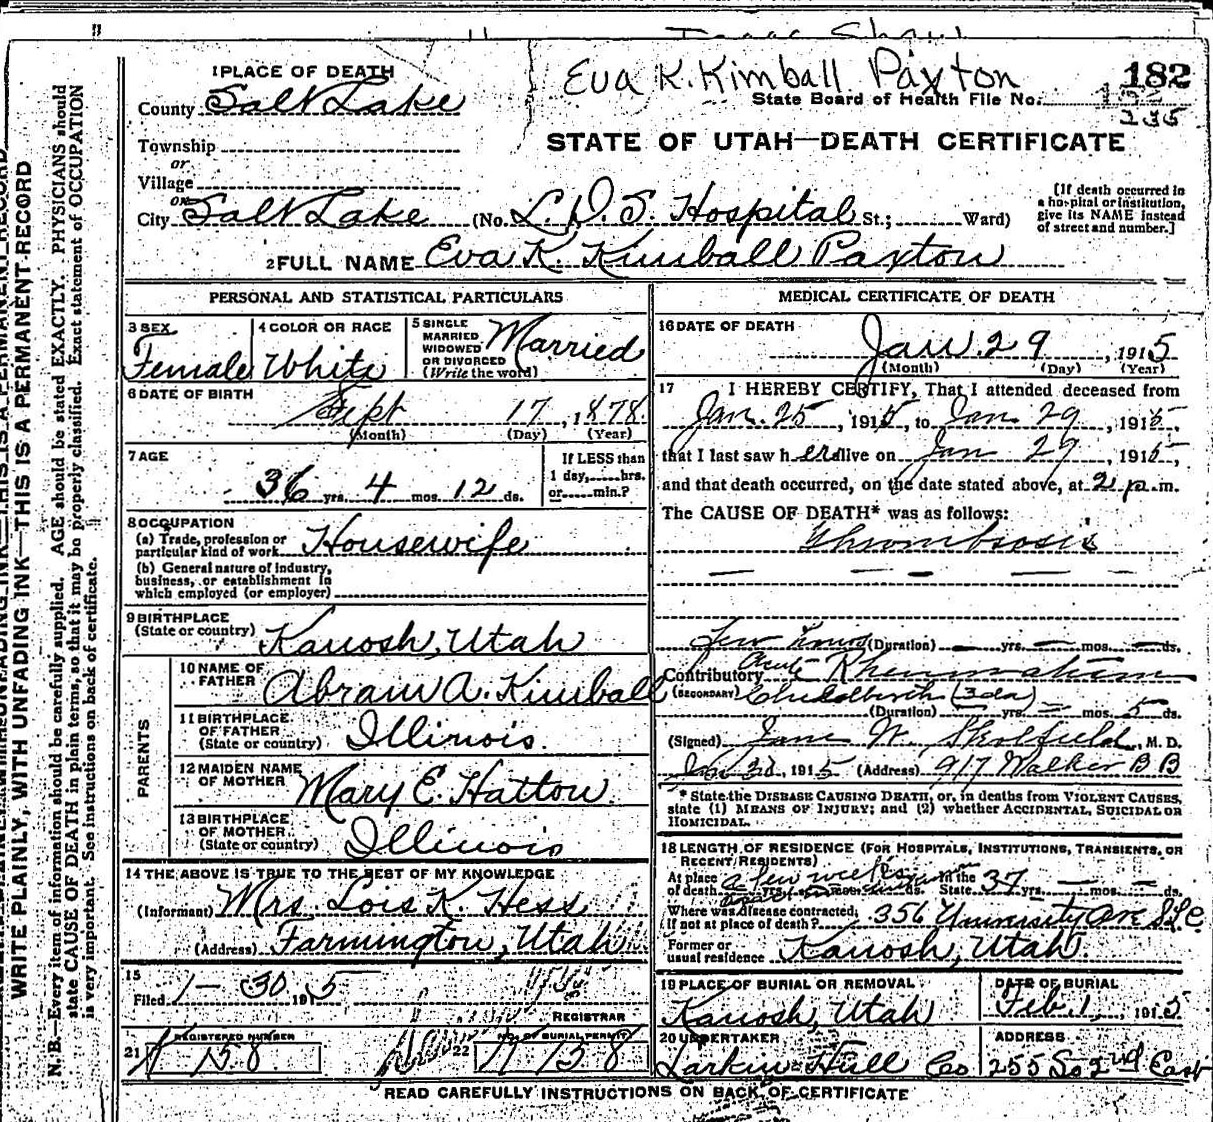 Eva K. Kimball Paxton
182
State Board of Health File No.
235
STATE OF UTAH—DEATH CERTIFICATE
1 PLACE OF DEATH
County Salt Lake
Township
or
Village
or
City Salt Lake (No. L.D.S. Hospital St.; Ward)
[If death occurred in a hospital or institution, give its NAME instead of street and number.]
2 FULL NAME Eva K. Kimball Paxton
PERSONAL AND STATISTICAL PARTICULARS
3 SEX Female
4 COLOR OR RACE White
5 SINGLE MARRIED WIDOWED OR DIVORCED (Write the word) Married
6 DATE OF BIRTH
Sept 17, 1878
(Month) (Day) (Year)
7 AGE
36 yrs. 4 mos. 12 ds.
If LESS than 1 day,......hrs. or......min.?
8 OCCUPATION
(a) Trade, profession or particular kind of work Housewife
(b) General nature of industry, business, or establishment in which employed (or employer)
9 BIRTHPLACE
(State or country) Kanosh, Utah
PARENTS
10 NAME OF FATHER Abram A. Kimball
11 BIRTHPLACE OF FATHER (State or country) Illinois.
12 MAIDEN NAME OF MOTHER Mary E. Hatton
13 BIRTHPLACE OF MOTHER (State or country) Illinois
14 THE ABOVE IS TRUE TO THE BEST OF MY KNOWLEDGE
(Informant) Mrs. Lois K. Hess
(Address) Farmington, Utah
15
Filed 1-30 1915
REGISTRAR
21 REGISTERED NUMBER 158
22 NO. OF BURIAL PERMIT 158
MEDICAL CERTIFICATE OF DEATH
16 DATE OF DEATH
Jan. 29, 1915
(Month) (Day) (Year)
17 I HEREBY CERTIFY, That I attended deceased from
Jan. 25, 1915, to Jan 29, 1915,
that I last saw her alive on Jan 29, 1915,
and that death occurred, on the date stated above, at 2 p.m.
The CAUSE OF DEATH* was as follows:
Thrombosis
Few (Duration) yrs. mos. ds.
Contributory Acute Rheumatism
(SECONDARY) Childbirth (3da)
(Duration) yrs. mos. 5 ds.
(Signed) Jane W. Skolfield, M. D.
1915 (Address) 917 Walker B B
* State the DISEASE CAUSING DEATH, or, in deaths from VIOLENT CAUSES, state (1) MEANS OF INJURY; and (2) whether ACCIDENTAL, SUICIDAL OR HOMICIDAL.
18 LENGTH OF RESIDENCE (FOR HOSPITALS, INSTITUTIONS, TRANSIENTS, OR RECENT RESIDENTS)
At place of death a few weeks yrs. mos. ds. In the State 37 yrs. mos. ds.
Where was disease contracted, if not at place of death? 356 University Ave S.L.C.
Former or usual residence Kanosh, Utah.
19 PLACE OF BURIAL OR REMOVAL
Kanosh, Utah
DATE OF BURIAL
Feb. 1, 1915
20 UNDERTAKER
Larkin-Hull Co
ADDRESS
255 So 2nd East
READ CAREFULLY INSTRUCTIONS ON BACK OF CERTIFICATE
WRITE PLAINLY, WITH UNFADING INK—THIS IS A PERMANENT RECORD
N. B.—Every item of information should be carefully supplied. AGE should be stated EXACTLY. PHYSICIANS should
state CAUSE OF DEATH in plain terms, so that it may be properly classified. Exact statement of OCCUPATION
is very important. See instructions on back of certificate.